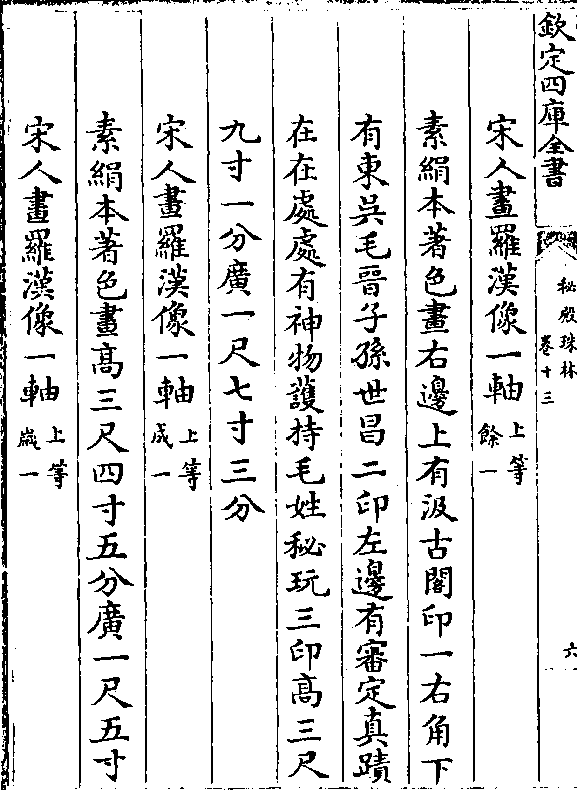 欽定四庫全書
秘殿珠林
卷十三
六
宋人畫羅漢像一軸上等餘一
素絹本著色畫右邊上有汲古閣印一右角下
有東吳毛晉子孫世昌二印左邊有審定真蹟
在在處處有神物護持毛姓秘玩三印高三尺
九寸一分廣一尺七寸三分
宋人畫羅漢像一軸上等成一
素絹本著色畫高三尺四寸五分廣一尺五寸
宋人畫羅漢像一軸上等歲一